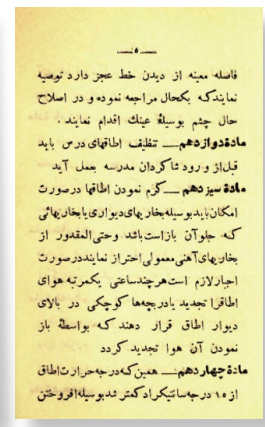 — ۵ —
فاصله معینه از دیدن خط عجز دارد توصیه
نمایند که بکحال مراجعه نموده و در اصلاح
حال چشم بوسیلهٔ عینک اقدام نمایند .
مادهٔ دوازدهم — تنظیف اطاقهای درس باید
قبل از ورود شاگردان مدرسه بعمل آید
مادهٔ سیزدهم — گرم نمودن اطاقها در صورت
امکان باید بوسیله بخاریهای دیواری یا بخاریهائی
که جلو آن باز است باشد وحتی المقدور از
بخاریهای آهنی معمولی احتراز نمایند در صورت
اجبار لازم است هر چند ساعتی یکمرتبه هوای
اطاقرا تجدید یا دریچه‌ها کوچکی در بالای
دیوار اطاق قرار دهند که بواسطهٔ باز
نمودن آن هوا تجدید گردد
مادهٔ چهاردهم — همین که درجه حرارت اطاق
از ۱۵ درجه سانتیگراد کمتر شد بوسیله افروختن